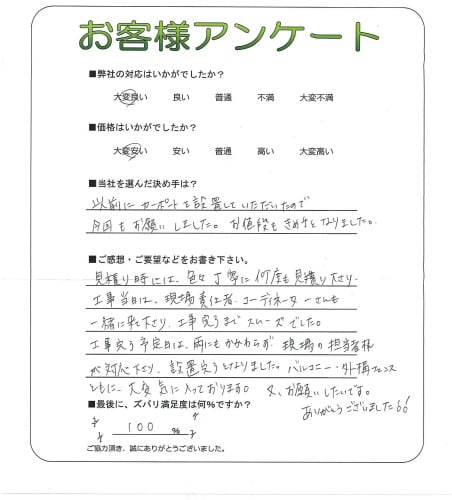 お客様アンケート
■弊社の対応はいかがでしたか？
大変良い 良い 普通 不満 大変不満
■価格はいかがでしたか？
大変安い 安い 普通 高い 大変高い
■当社を選んだ決め手は？
以前にカーポートを設置していただいたので
今回もお願いしました。お値段もきめ手となりました。
■ご感想・ご要望などをお書き下さい。
見積り時には、色々丁寧に何度も見積り下さり、
工事当日は、現場責任者、コーディネーターさんも
一緒に来て下さり、工事完了までスムーズでした。
工事完了予定日は、雨にもかかわらず、現場の担当者様
が対応下さり、設置完了となりました。バルコニー・外構フェンス
ともに、大変気に入っております。又、お願いしたいです。
ありがとうございました!!
■最後に、ズバリ満足度は何％ですか？
100 %
ご協力頂き、誠にありがとうございました。